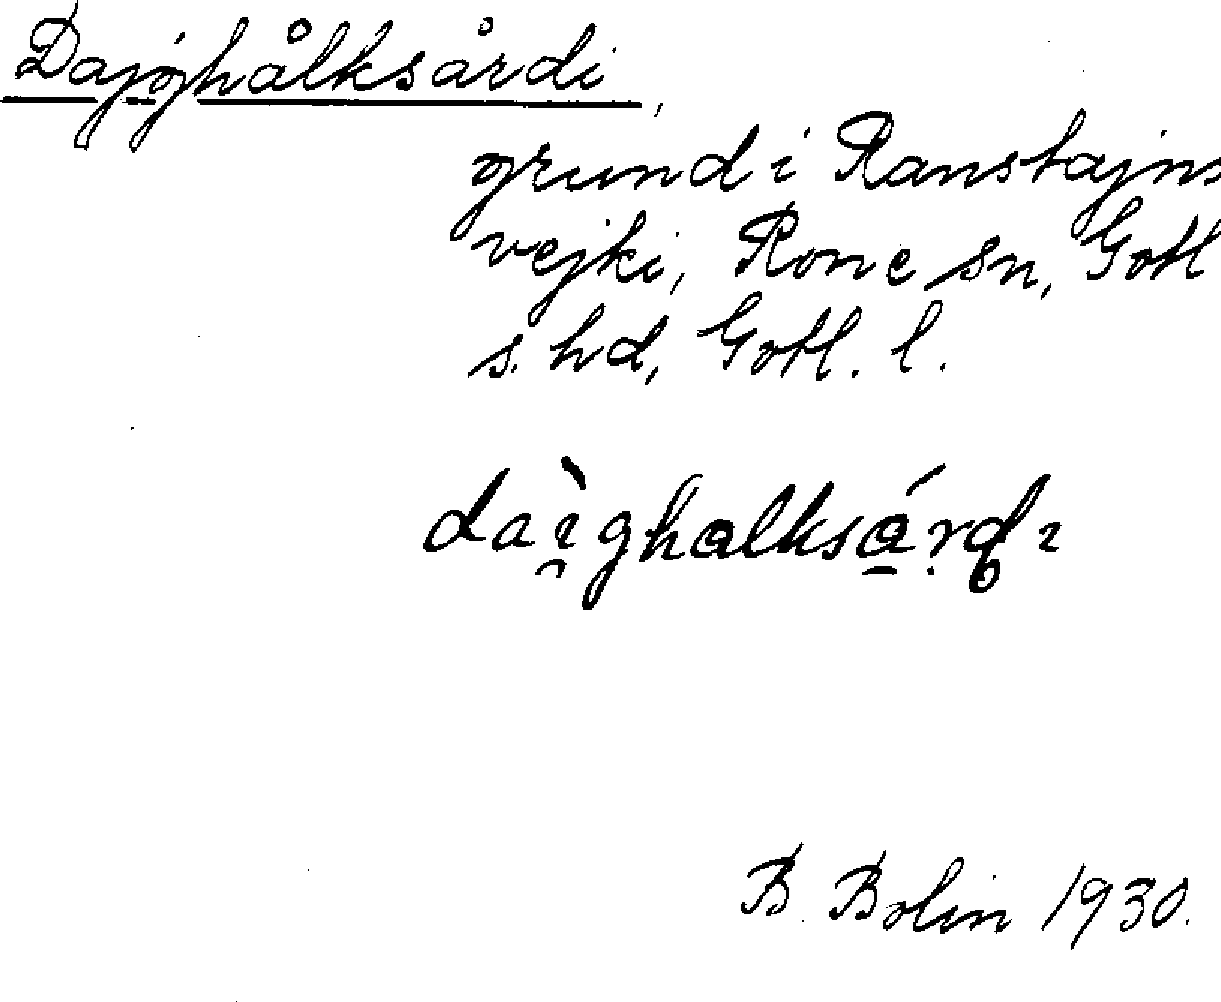 Dajghålksårdi,
grund i Ranstajns
vejki, Rone sn, Gotl
s. hd, Gotl. l.
daı̯̀ghalksá̠rdı
B. Bolin 1930.